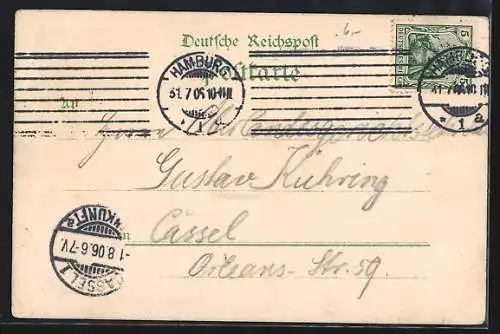 .6.-
Deutsche Reichspost
Postkarte
5
HAMBURG
31.7.06.10-11V.
* 1 a
HAMBURG
31.7.06.10-11V.
* 1 a
An
Herrn
Gustav Kühring
Cassel
in
Orleans-Str. 59.
CASSEL 1
ANKUNFT
-1.8.06.6-7V.